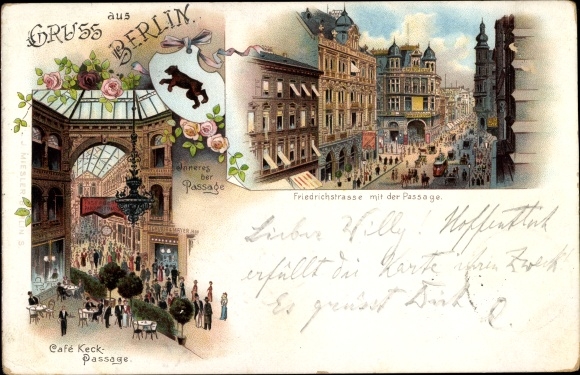 GRUSS aus
BERLIN.
Friedrichstrasse mit der Passage.
Inneres
der
Passage
J. MIESLER
Café Keck-
Passage.
Lieber Willy! Hoffentlich
erfüllt die Karte ihren Zweck!
Es grüsst Dich